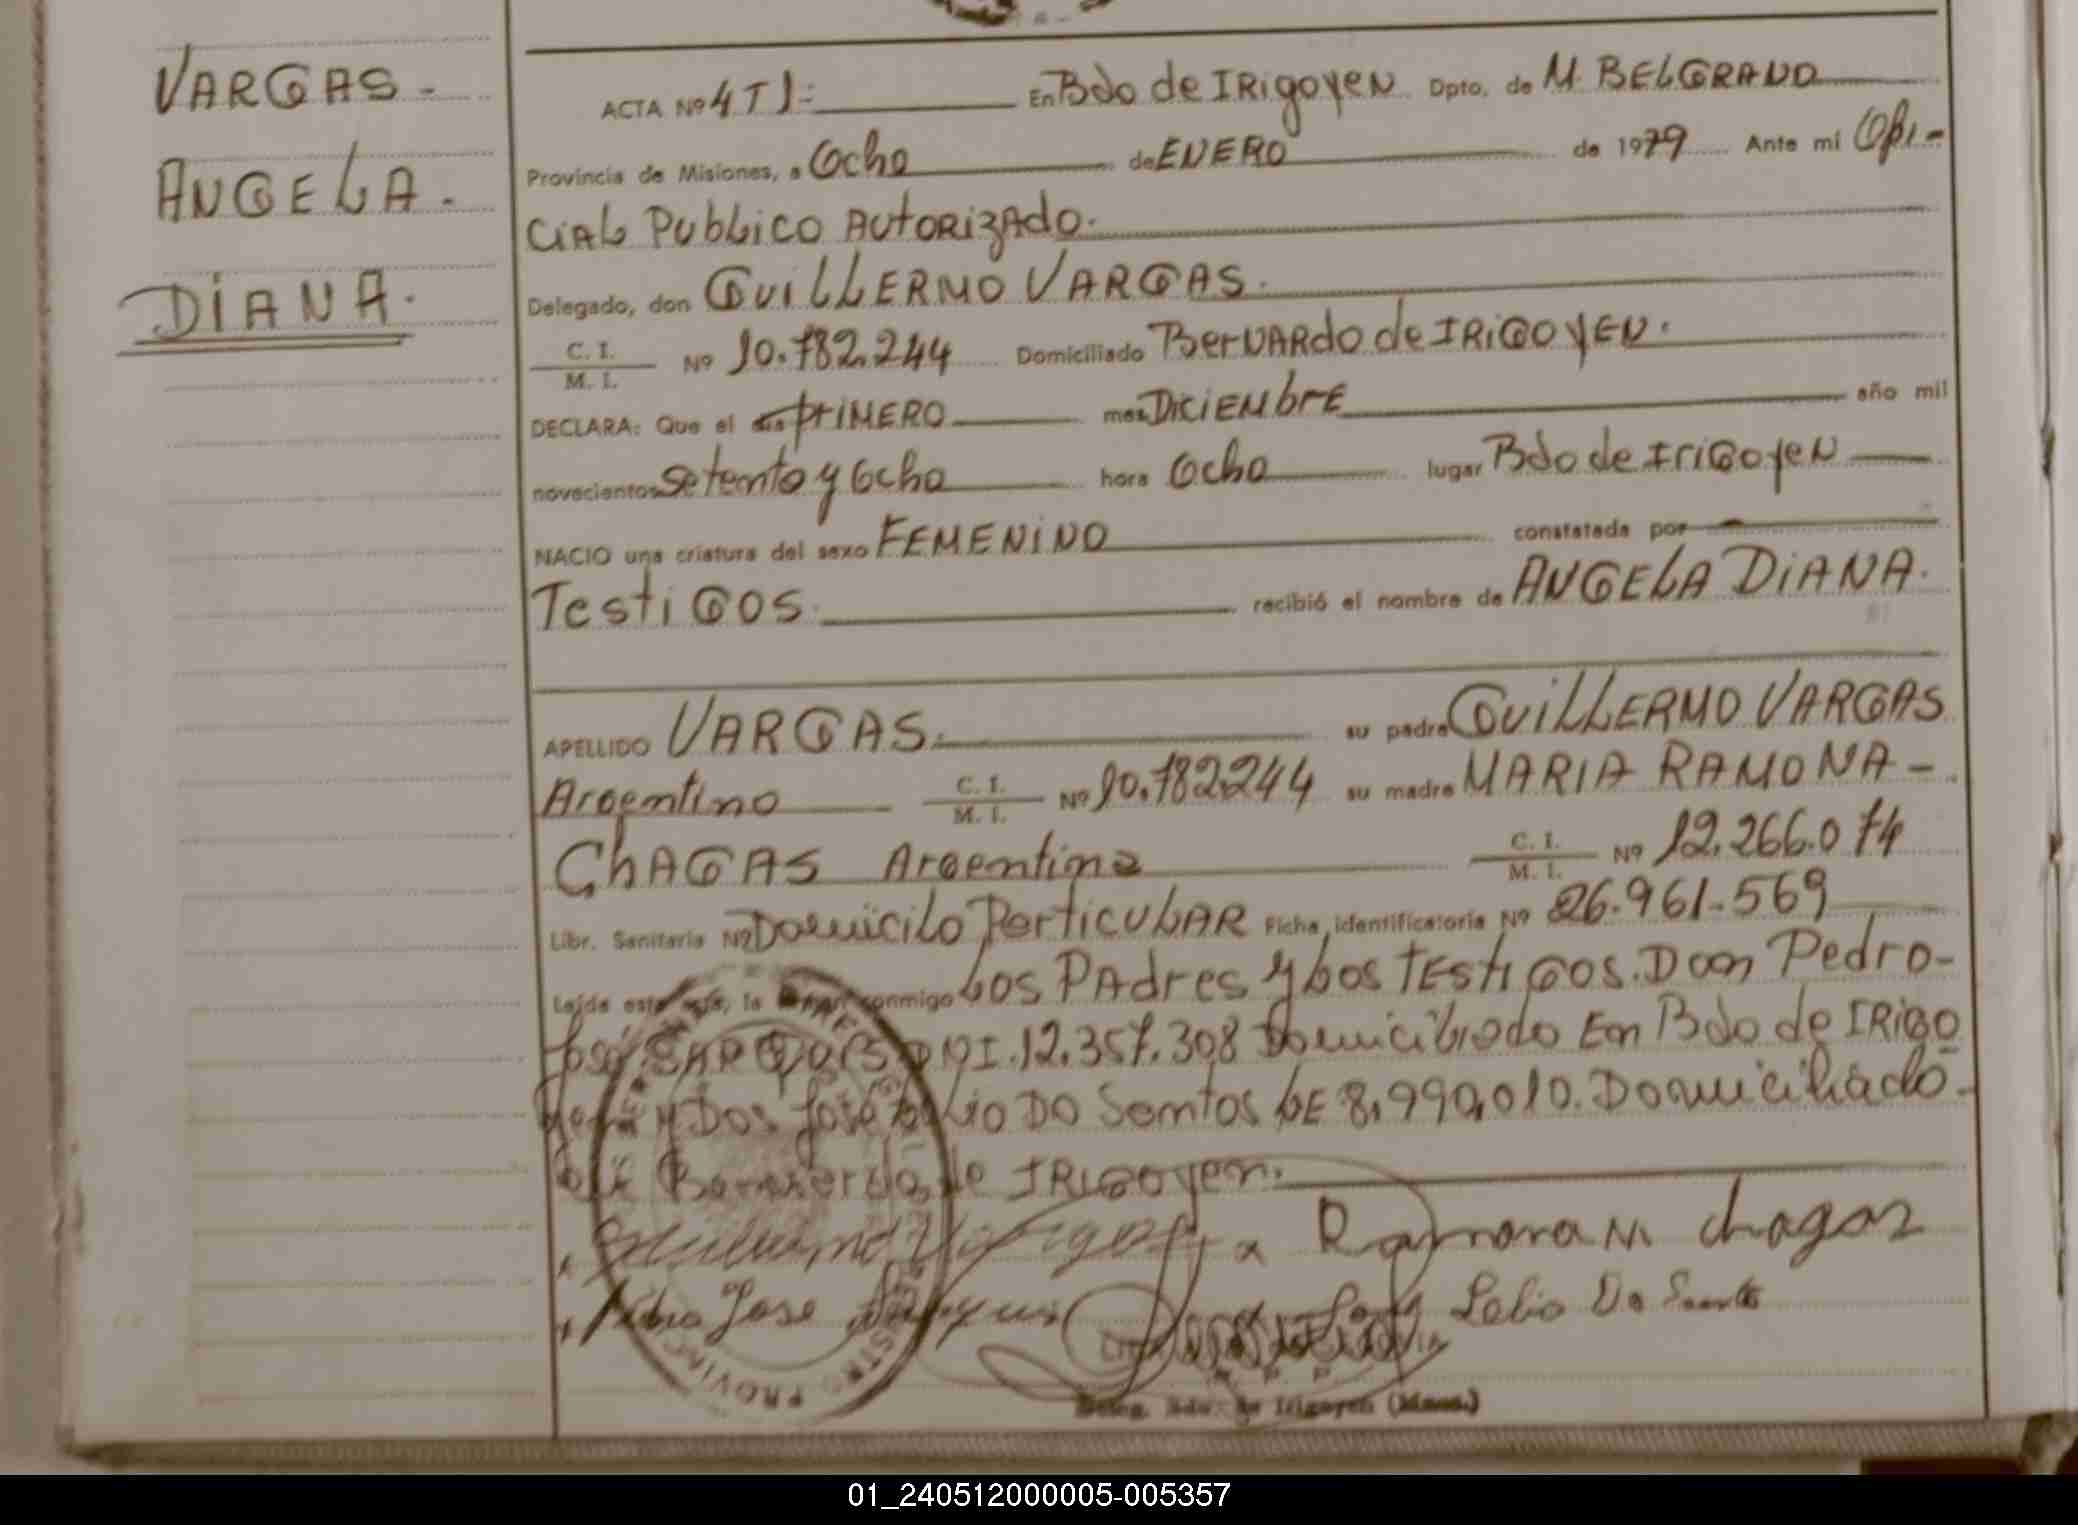 VARGAS.
ANGELA.
DIANA.
ACTA Nº 4 T I: En Bdo de IRigoyEN Dpto. de M. BELGRANO
Provincia de Misiones, a Ocho de ENERO de 1979 Ante mi Ofi-
CiAL PubLico AutoRizAdo.
Delegado, don GuiLLERMO VARGAS.
C. I.
M. I. Nº 10.782.244 Domiciliado BerNARdo de IRiGOyEN.
DECLARA: Que el día priMERO mes DiciEMbrE año mil
novecientos setenta y Ocho hora Ocho lugar Bdo de IriGoyeN
NACIO una criatura del sexo FEMENiNO constatada por
TestiGOS. recibió el nombre de ANGELA DiANA.
APELLIDO VARGAS. su padre GuiLLERMO VARGAS
Argentino C. I.
M. I. Nº 10.782.244 su madre MARIA RAMONA-
ChAGAS Argentina C. I.
M. I. Nº 12.266.074
Libr. Sanitaria Nº Domicilo PerticuLAR Ficha identificatoria Nº 26.961.569
Leída esta acta, la firman conmigo Los PAdres y Los TEstiGOS. Don Pedro-
José SARQUIS DNI. 12.357.308 Domiciliado En Bdo de IRiGo
yen y Dos José Lelio DO Santos LE 8.990.010. Domiciliado-
de IRiGoyen.
Guillermo Vargas x Ramona M chagas
Pedro Jose Sarquis Lelio Do Santos
Deleg. Bdo. de Irigoyen (Mnes.)
REGISTRO PROVINCIAL
01_240512000005-005357